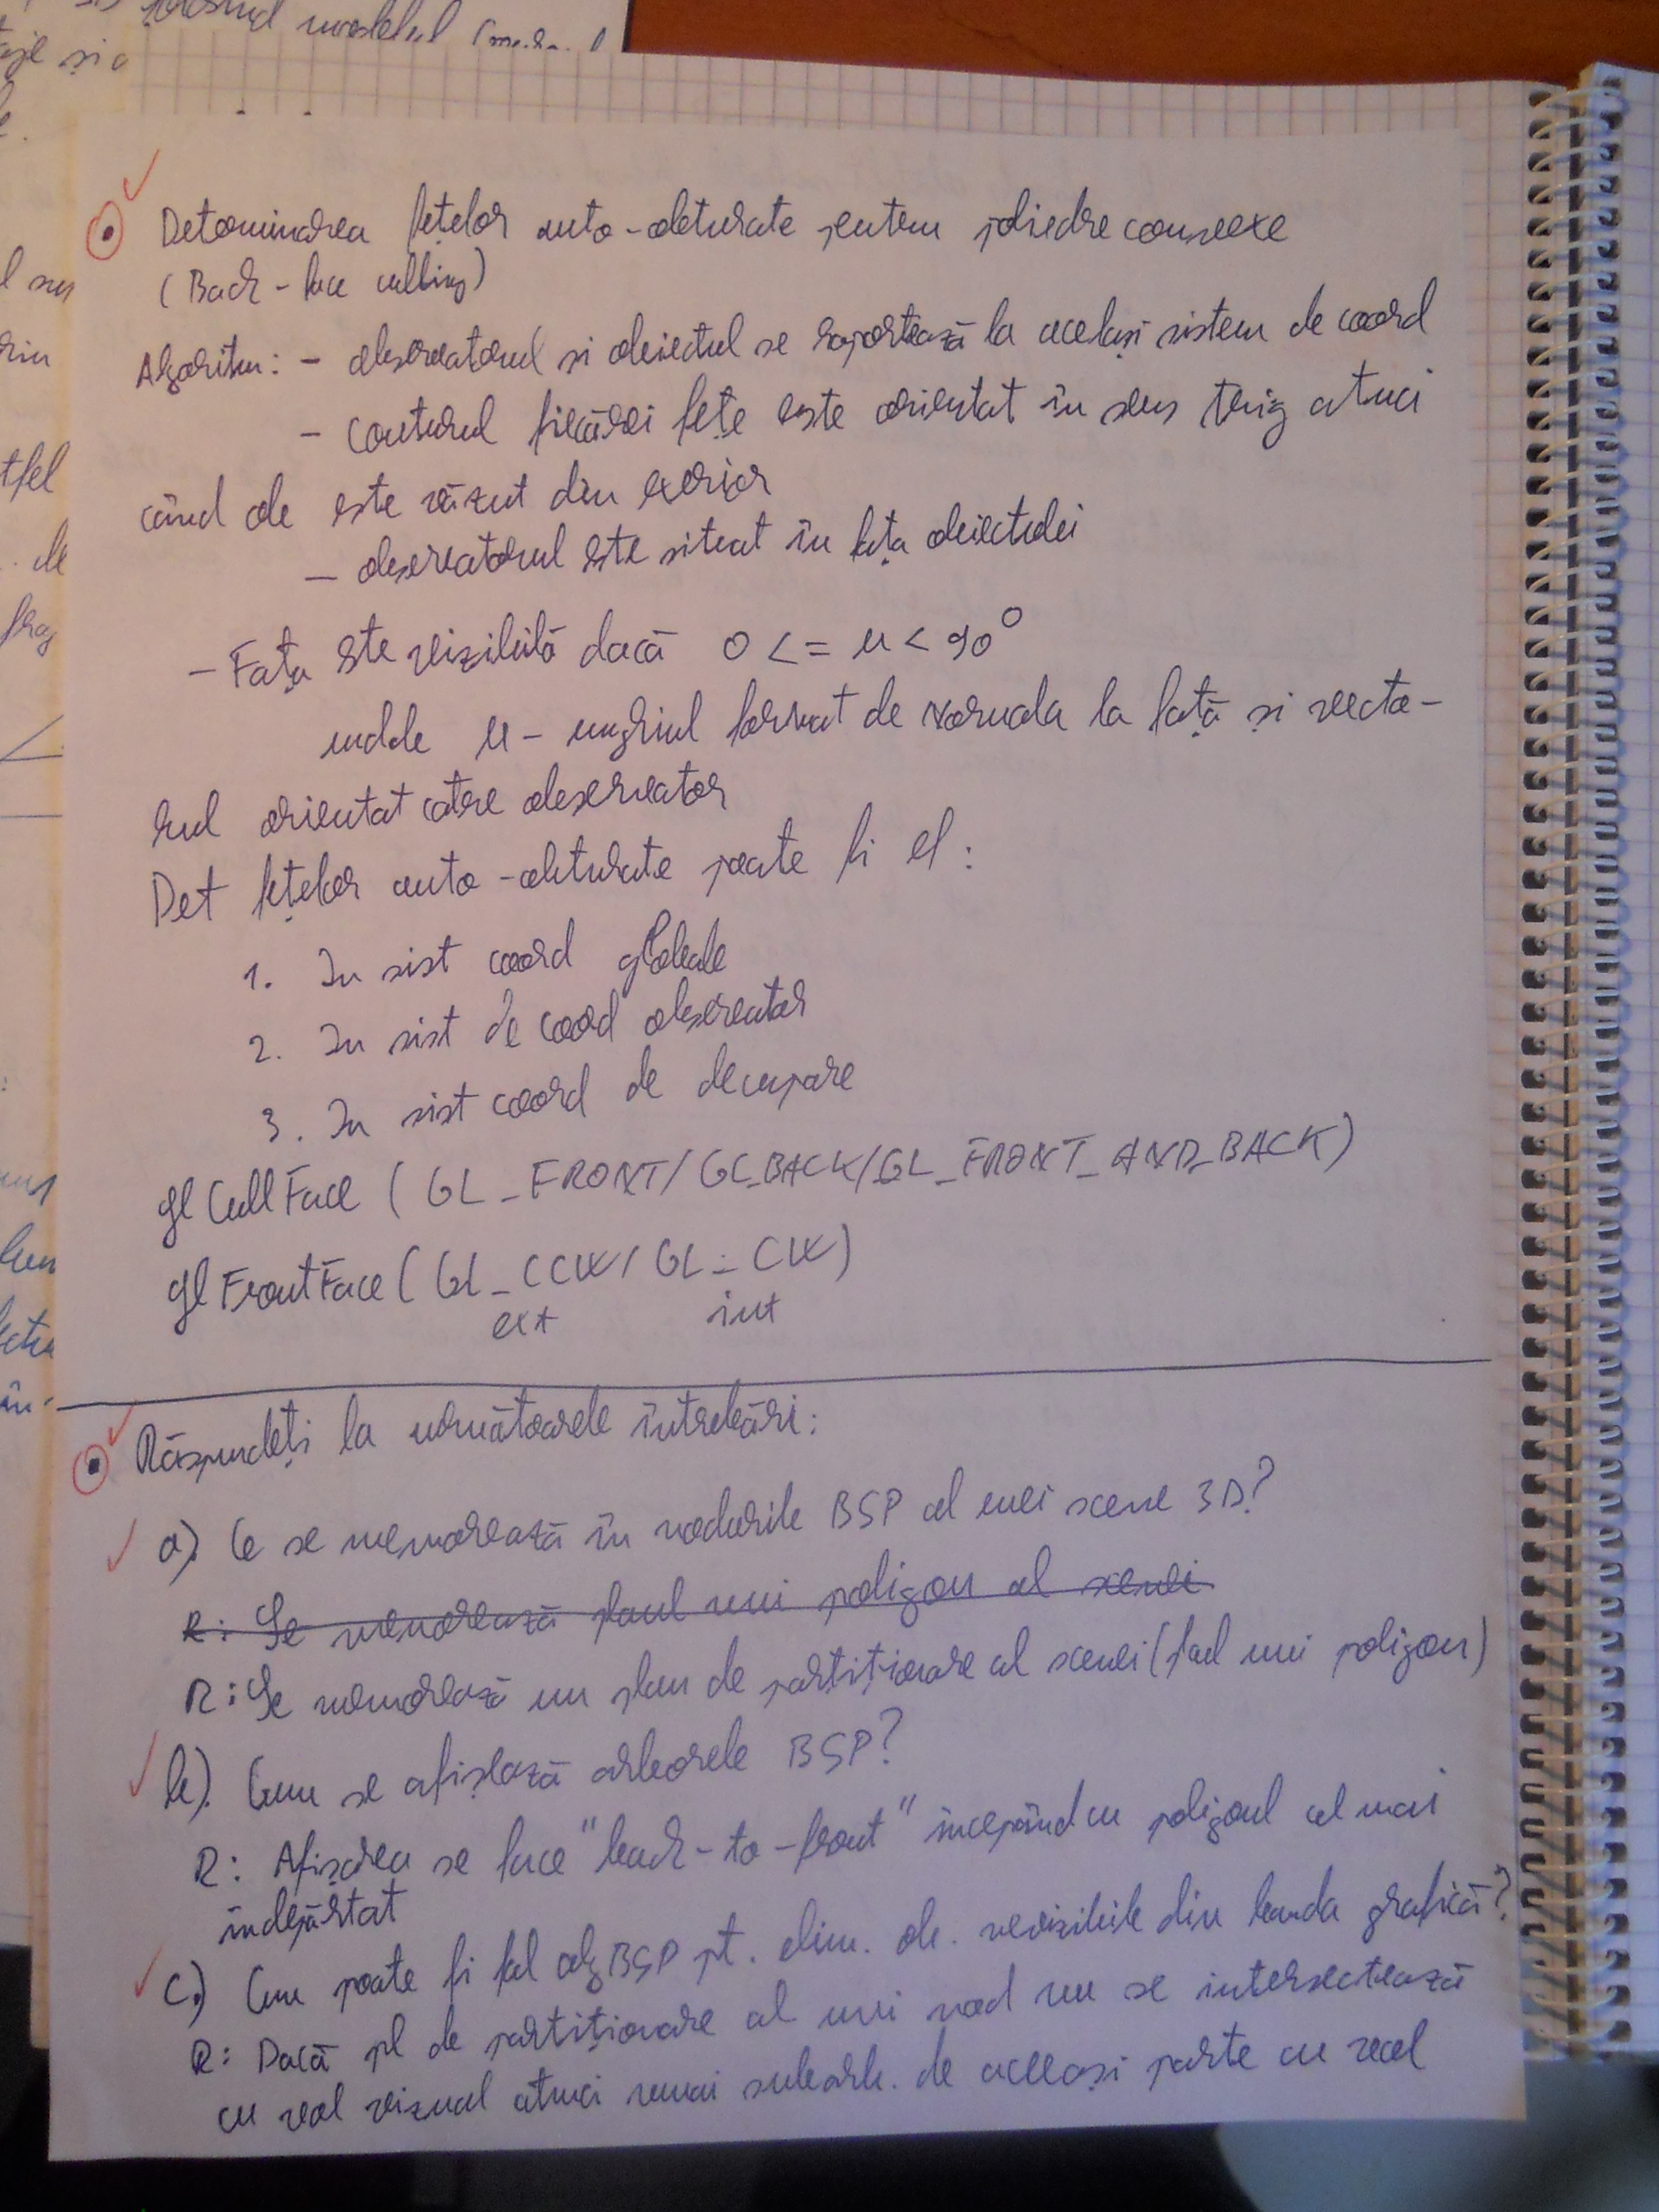 Determinarea fețelor auto-obturate pentru poliedre convexe
(Back-face culling)
Algoritm: - observatorul și obiectul se raportează la același sistem de coord
- conturul fiecărei fețe este orientat în sens trig atunci
când ob este văzut din exerior
- observatorul este situat în fața obiectului
- Fața este vizibilă dacă 0 <= u < 90°
unde u - unghiul format de normala la față și vecto-
rul orientat catre observator
Det fețelor auto-obturate poate fi ef:
1. In sist coord globale
2. In sist de coord observator
3. In sist coord de decupare
glCullFace (GL_FRONT/GL_BACK/GL_FRONT_AND_BACK)
glFrontFace (GL_CCW/GL_CW)
ext int
Răspundeți la următoarele întrebări:
a). Ce se memorează în nodurile BSP al unei scene 3D?
R: Se memorează planul unui poligon al scenei
R: Se memorează un plan de partiționare al scenei (unui poligon)
b). Cum se afișează arborele BSP?
R: Afișarea se face "back-to-front" începând cu poligonul cel mai
îndepărtat
c.) Cum poate fi fol alg BSP pt. elim. ob. nevizibile din banda grafică?
R: Dacă pl de partiționare al unui nod nu se intersectează
cu vol vizual atunci numai subarb. de aceeași parte cu